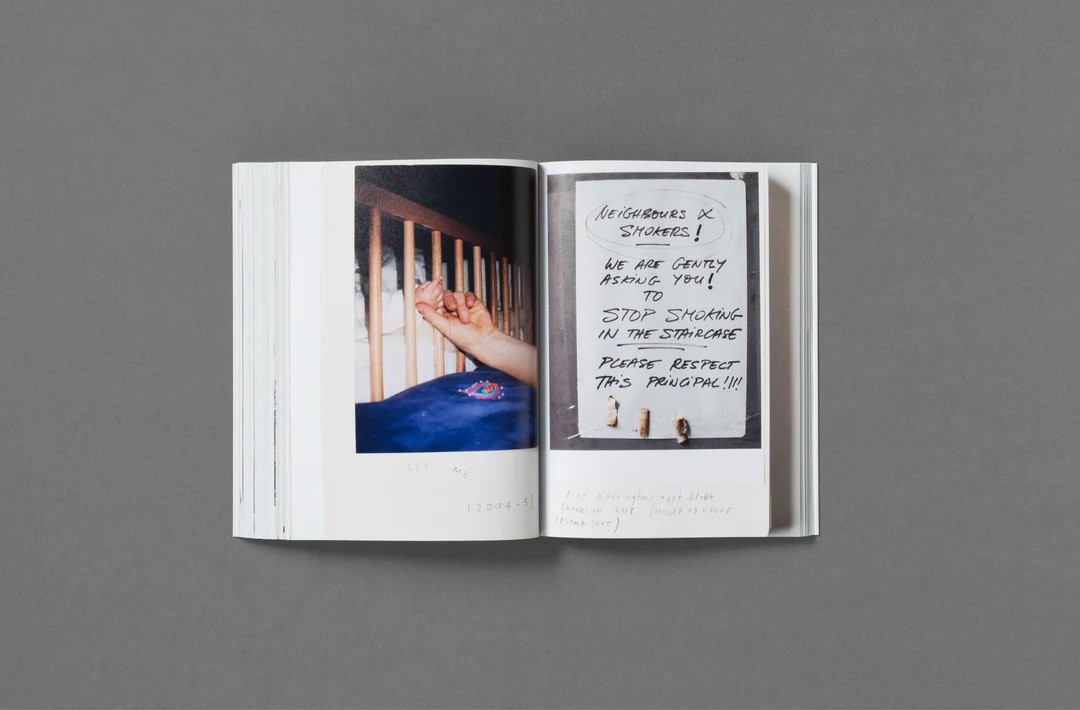 LEV ME
(2004-5)
NEIGHBOURS &
SMOKERS!
WE ARE GENTLY
ASKING YOU!
TO
STOP SMOKING
IN THE STAIRCASE
PLEASE RESPECT
THIS PRINCIPAL!!!!
Alex Harrington's appt block
BROOKLYN 2018 (